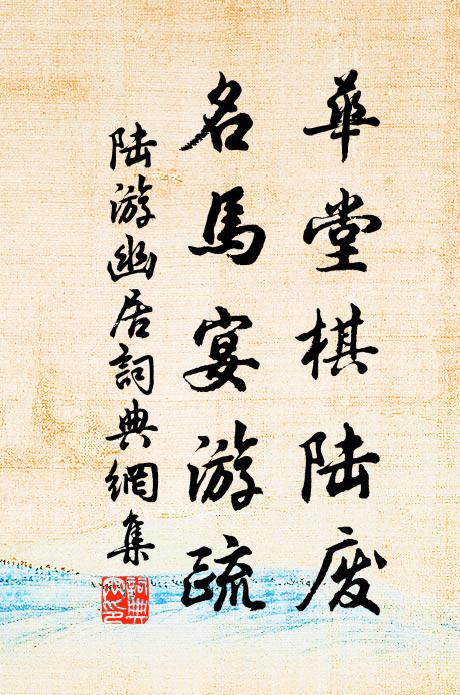 華堂棋陸废
名馬宴游疏
陸游幽居詞典網集